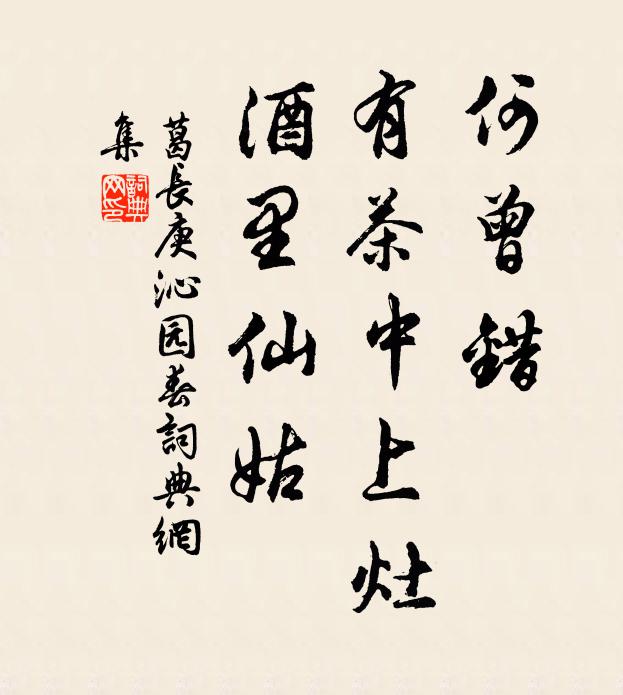 何曾錯
有茶中上灶
酒里仙姑
葛長庚沁园春詞典網
集
詞典
网印